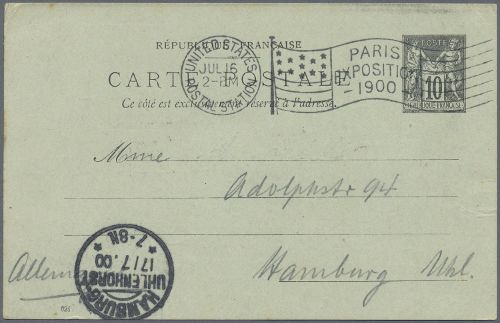 RÉPUBLIQUE FRANÇAISE
CARTE POSTALE
Ce côté est exclusivement réservé à l'adresse.
UNITED STATES
JUL 15
2-PM
POSTAL STATION
PARIS
EXPOSITION
-1900
POSTE
10
RÉPUBLIQUE FRANÇAISE
Mme
Adolphstr 94
Hamburg Uhl.
HAMBURG
UHLENHORST
17/7.00
* 7-8N. *